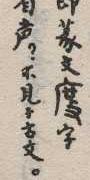 即篆文廢字
有声？不見于古文。